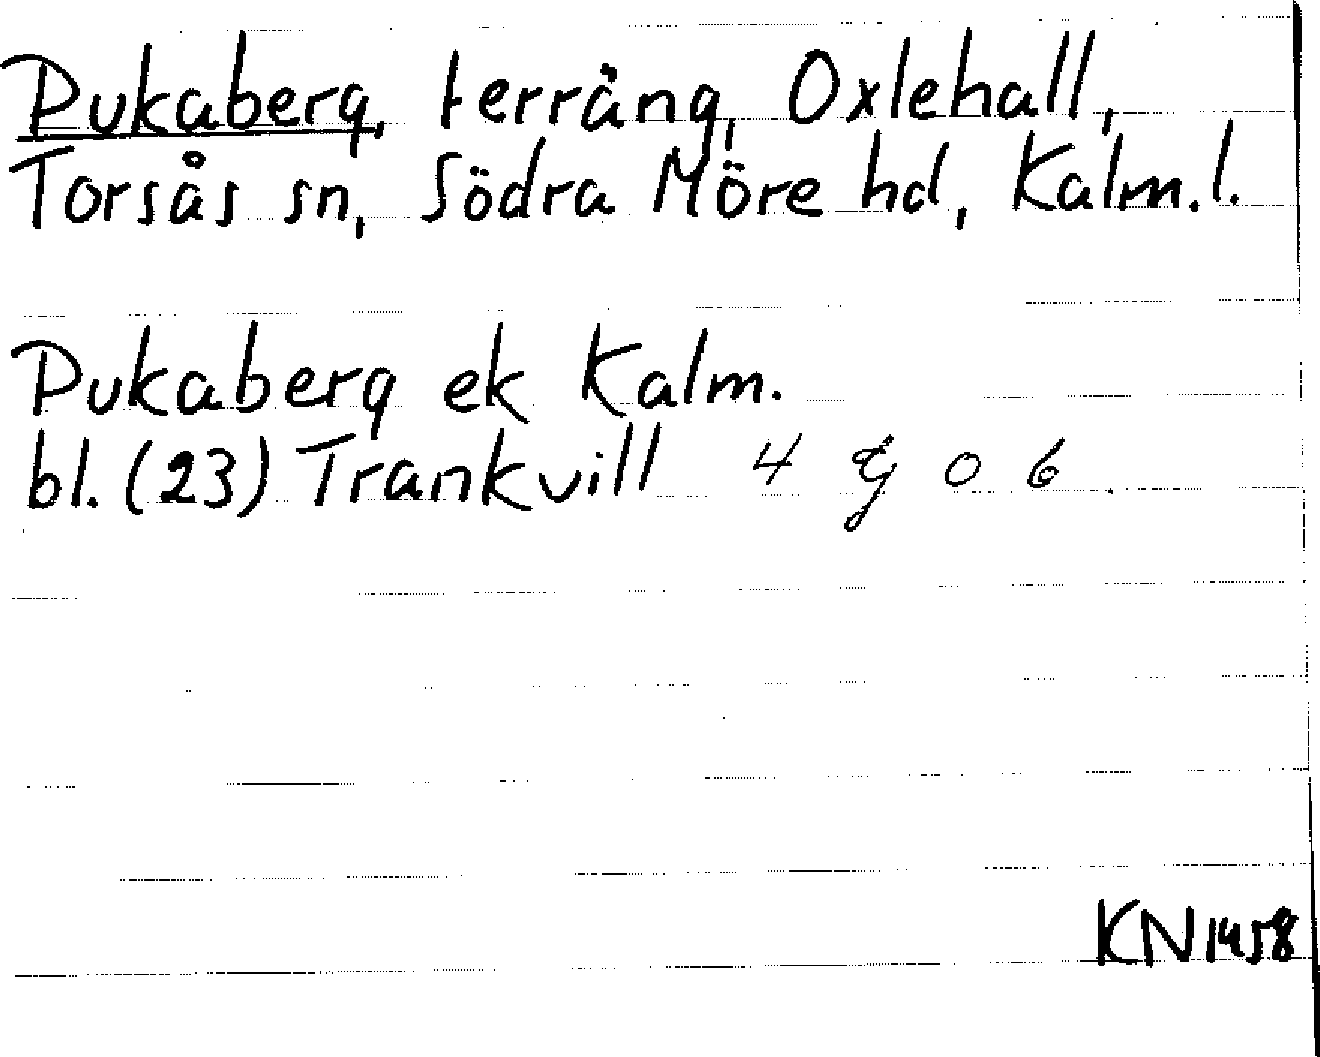 Pukaberg, terräng, Oxlehall,
Torsås sn, Södra Möre hd, Kalm.l.
Pukaberg ek Kalm.
bl. (23) Trankvill 4 G 0 6
KN 1958